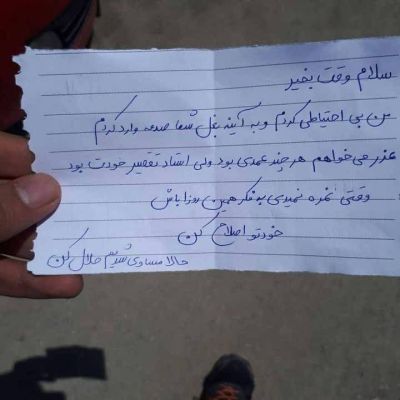 سلام وقت بخیر
من بی احتیاطی کردم و به آئینه بغل شما صدمه وارد کردم
عذر می خواهم هر چند عمدی بود ولی استاد تقصیر خودت بود
وقتی نمره نمیدی به فکر همین روزا باش
خودتو اصلاح کن
حالا مساوی شدیم حلال کن